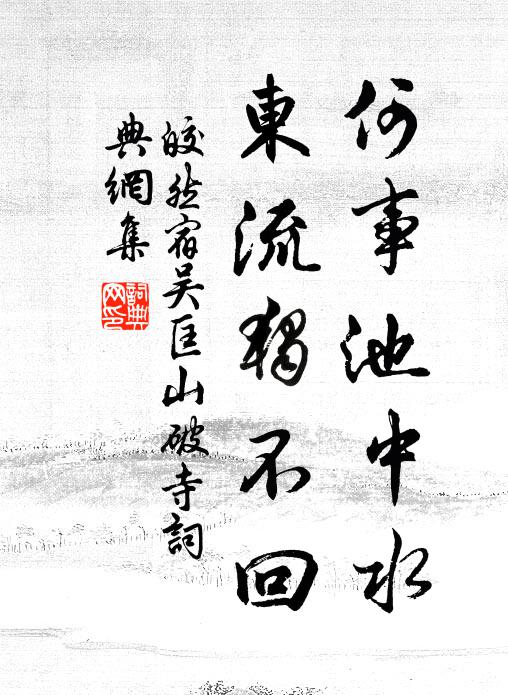 何事池中水
東流獨不回
皎然宿吳匡山破寺詞
典網集
詞典
网印